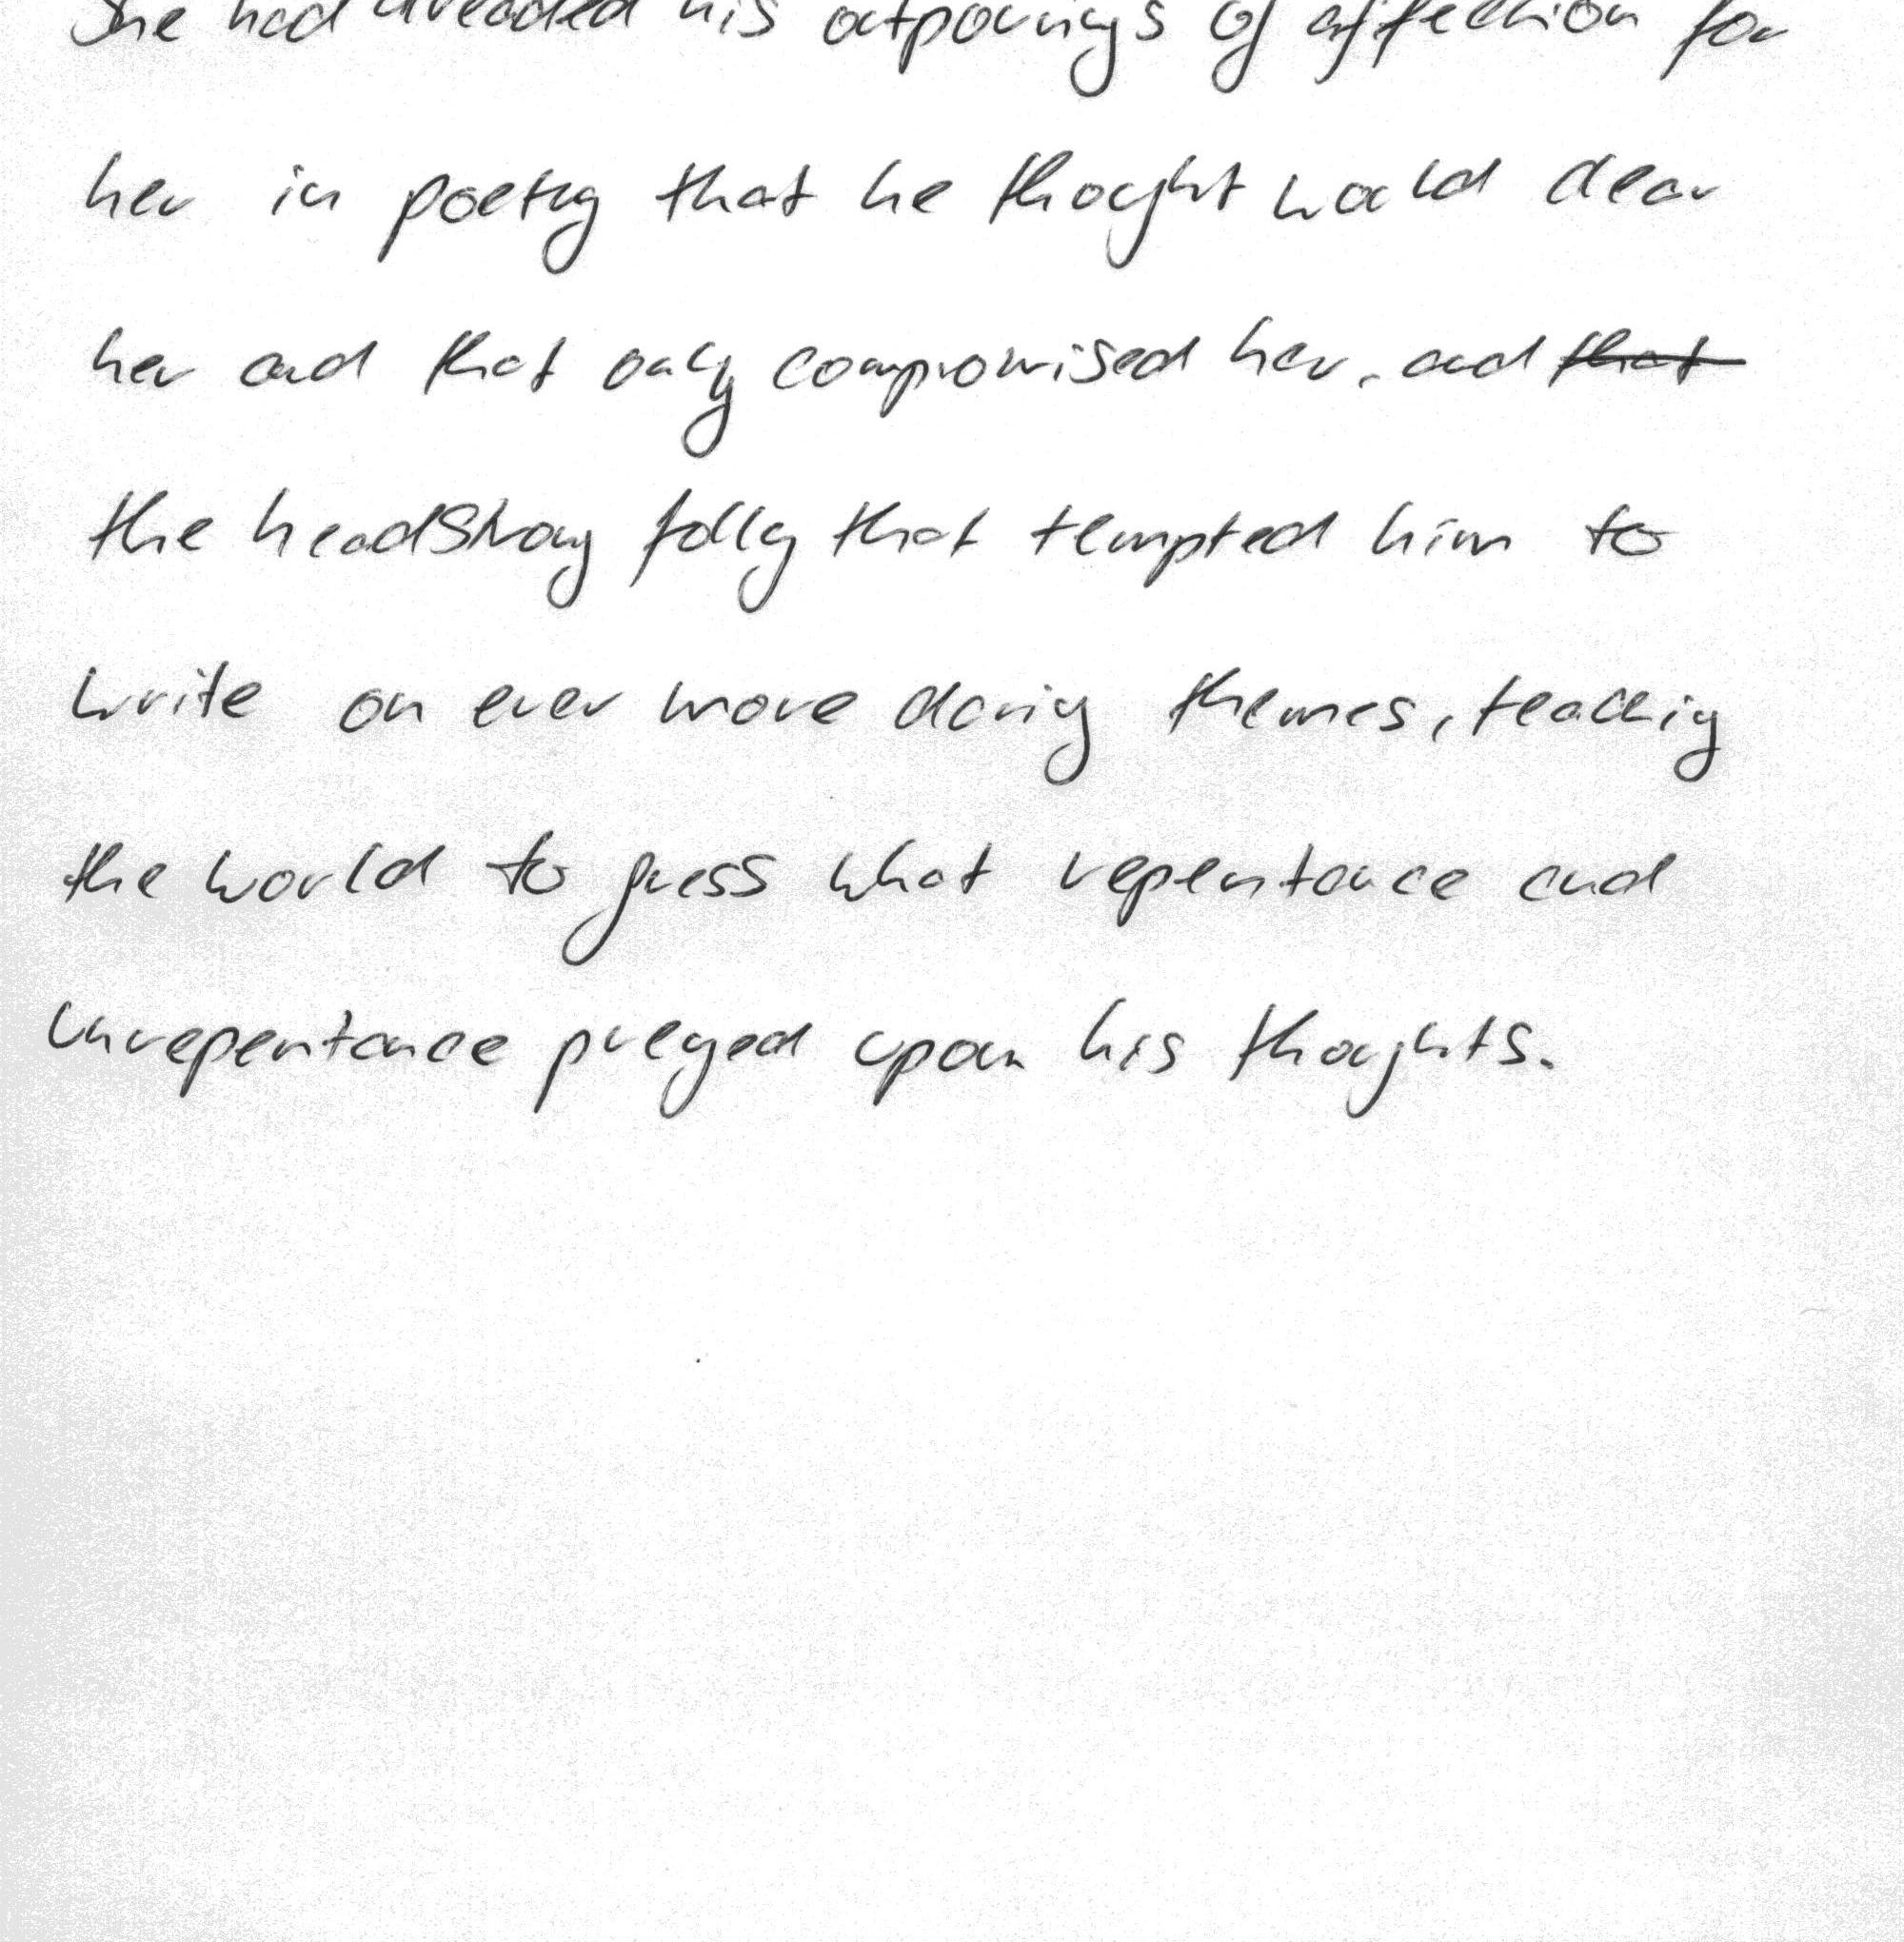 She had dreaded his outpourings of affection for
her in poetry that he thought would clear
her and that only compromised her, and that
the headstrong folly that tempted him to
write on ever more daring themes, teaching
the world to guess what repentance and
unrepentance preyed upon his thoughts.